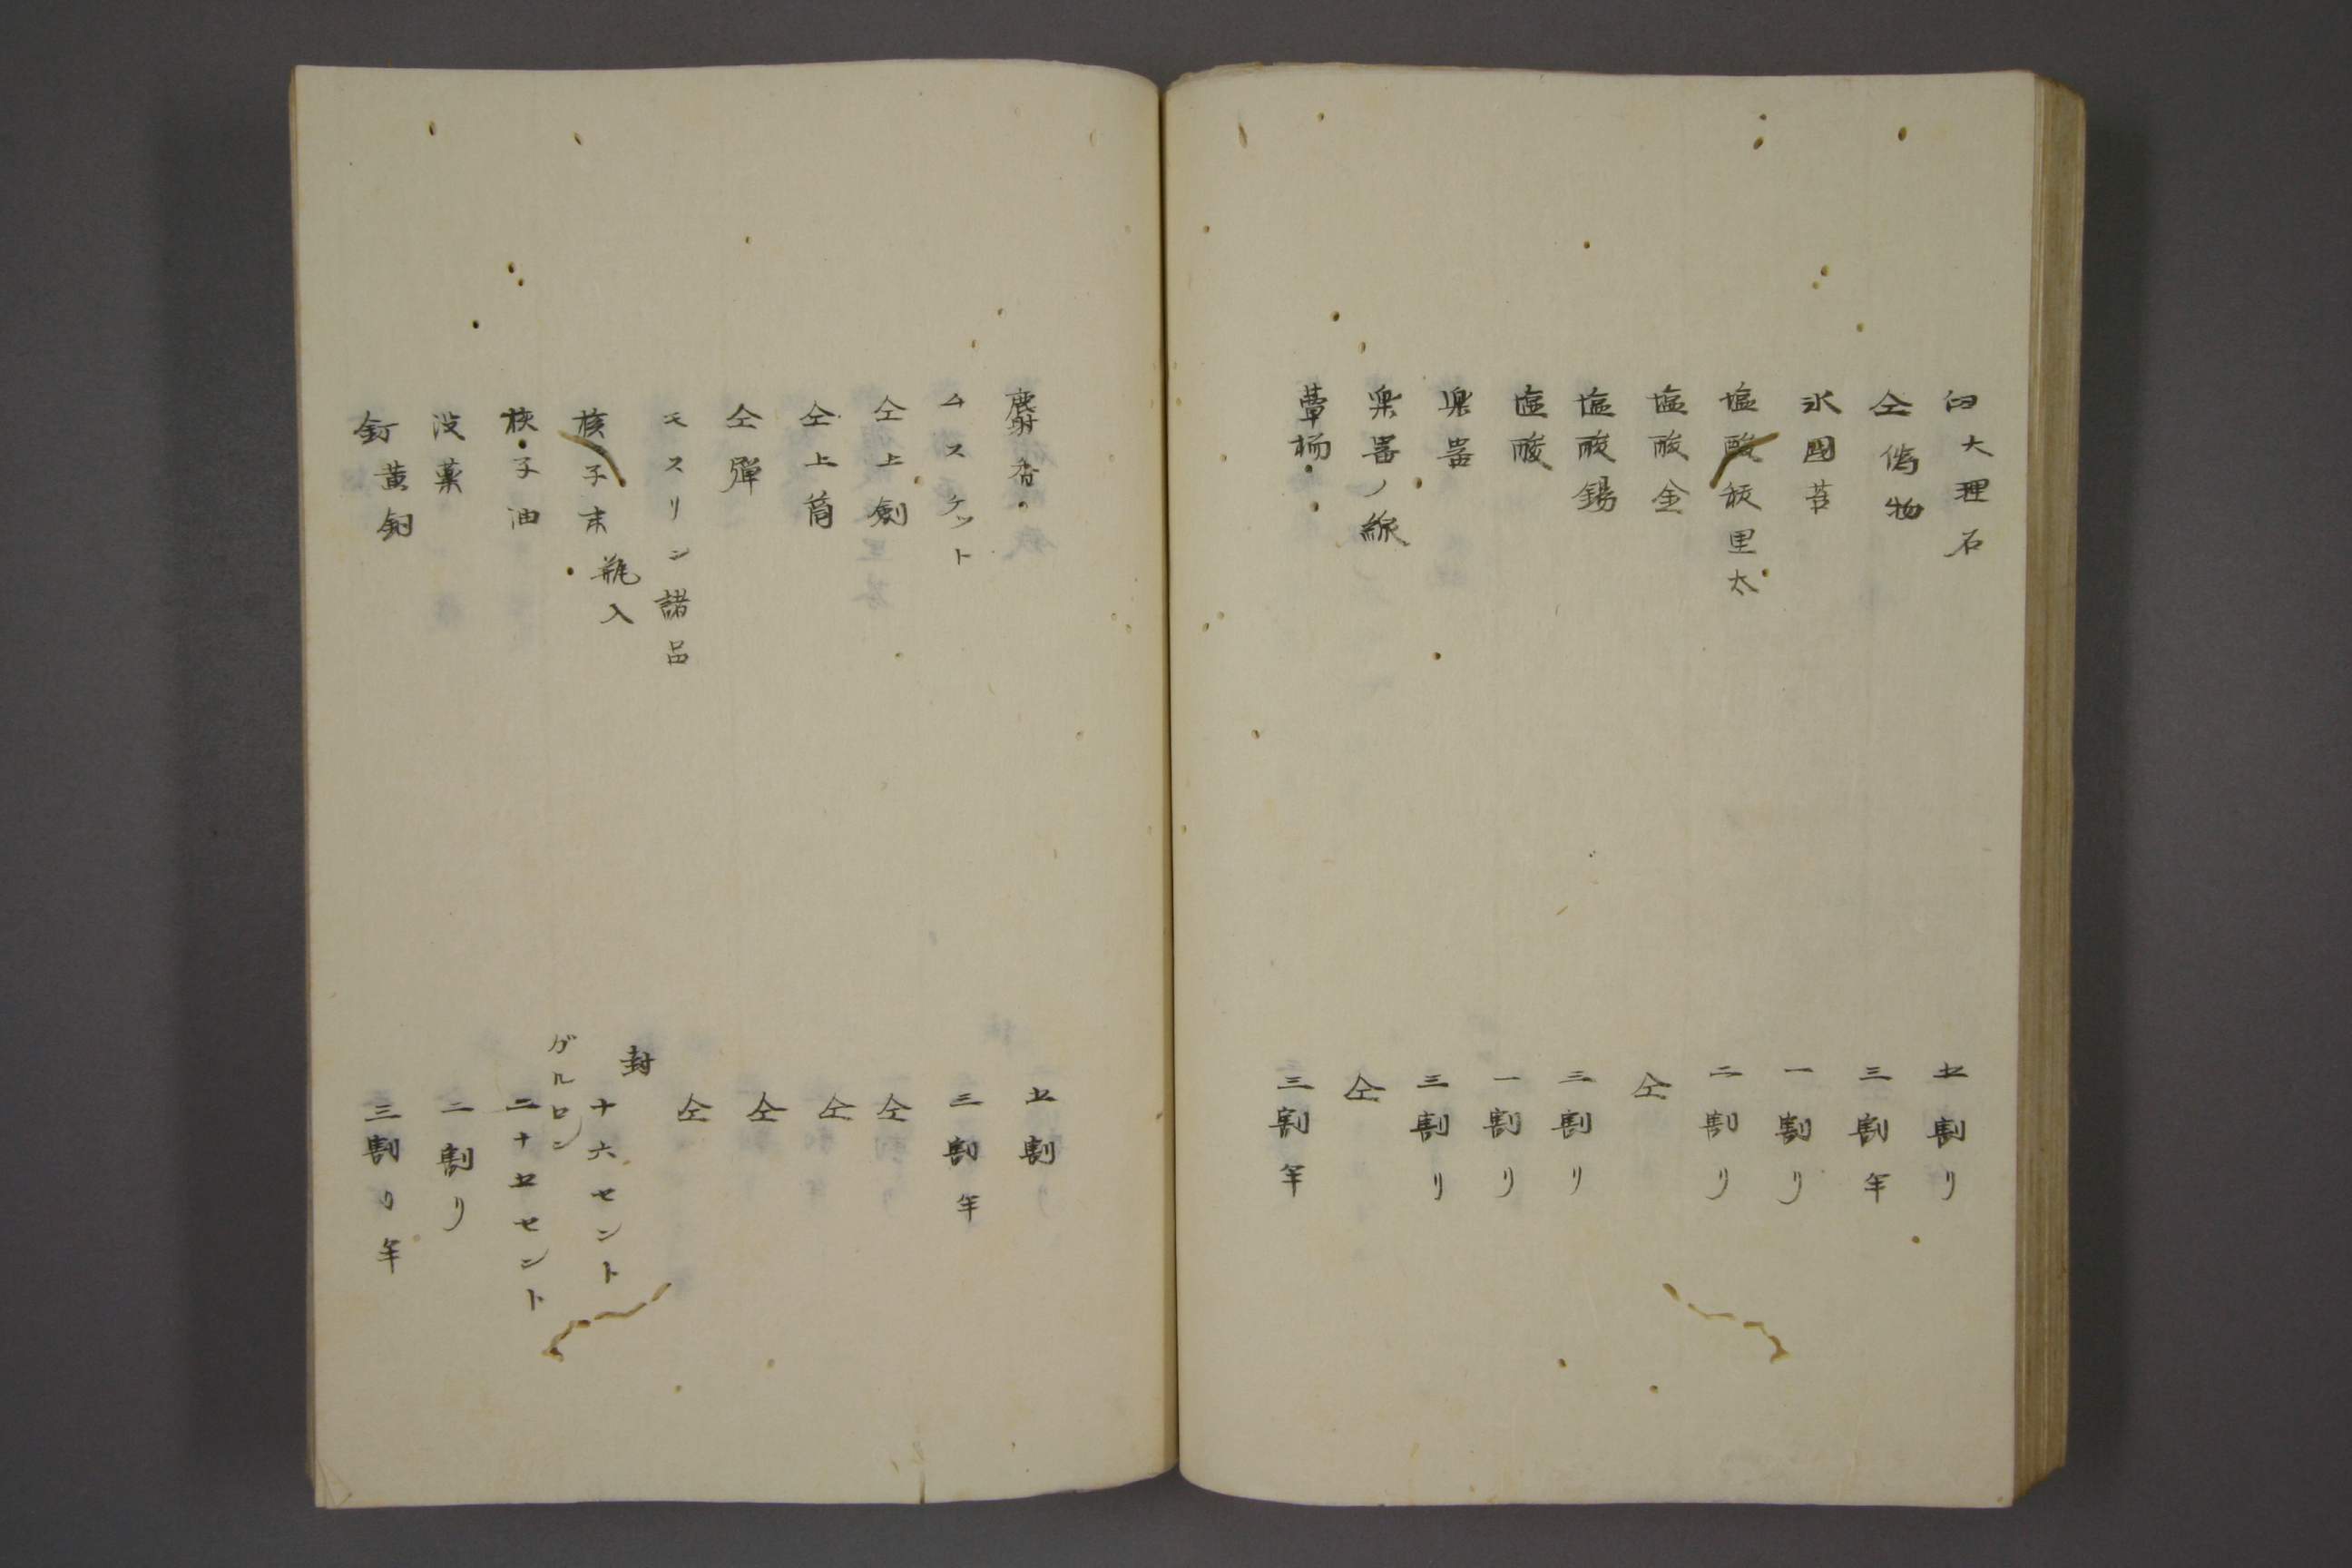 臼大理石 五割リ
仝偽物 三割半
氷國苔 一割リ
塩酸稼里太 二割リ
塩酸金 仝
塩酸錫 三割リ
塩酸 一割リ
樂器 三割リ
樂器ノ線 仝
蕈 三割半
麝香 五割
ムスケット 三割半
仝上劍 仝
仝上筒 仝
仝彈 仝
モスリン諸品 仝
核子末 瓶入 封 十六セント
核子油 ガルロン 二十五セント
没薬 二割リ
釘黄銅 三割リ半